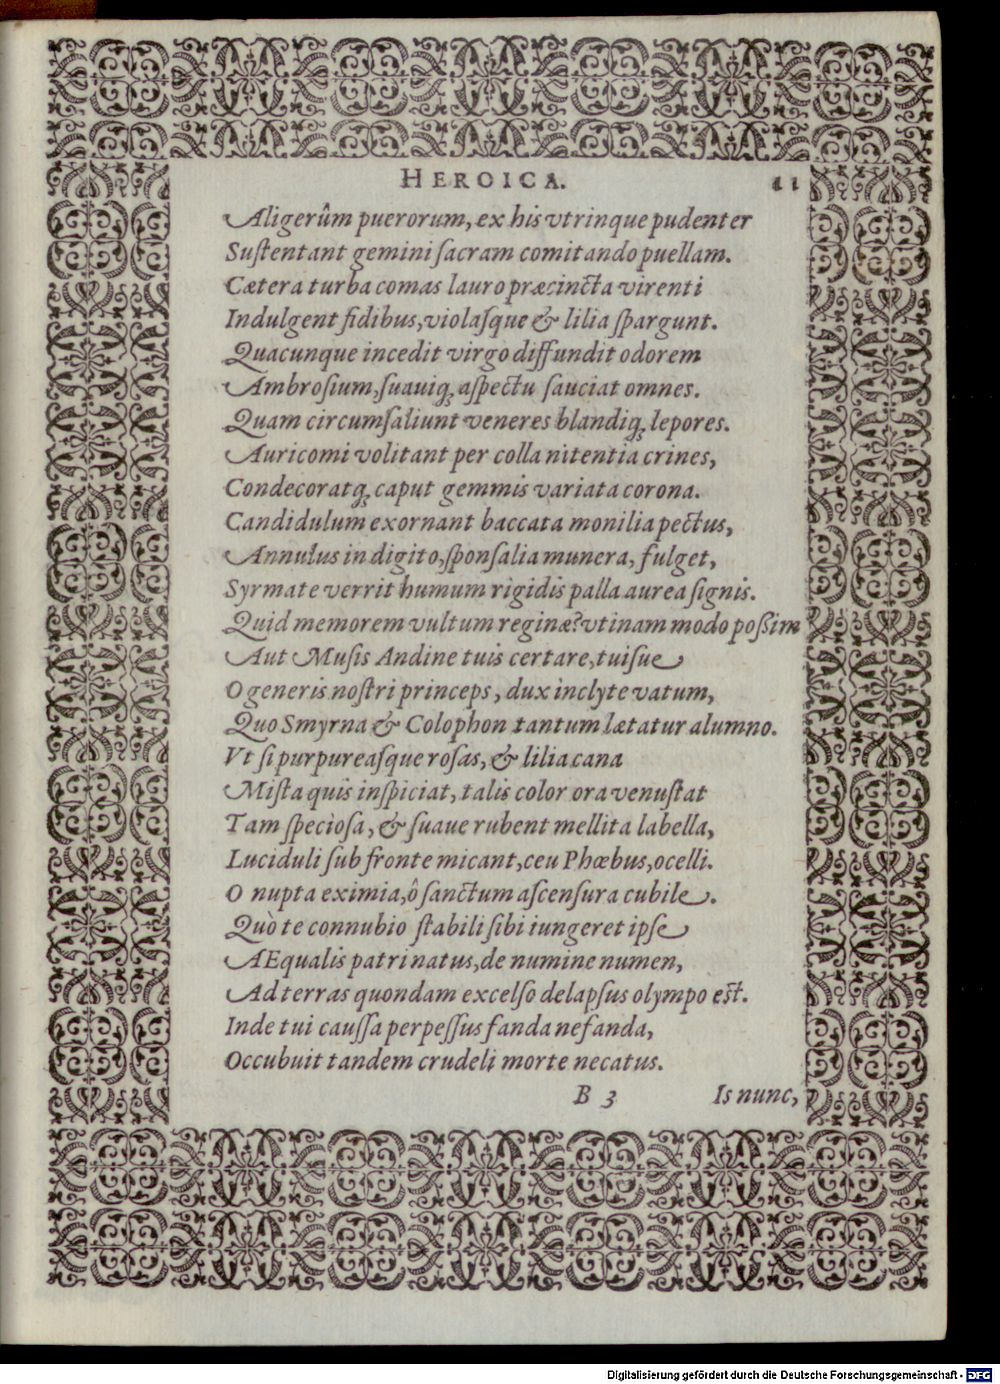 HEROICA. 11
Aligerûm puerorum, ex his vtrinque pudenter
Suſtentant gemini ſacram comitando puellam.
Cætera turba comas lauro præcincta virenti
Indulgent fidibus, violaſque & lilia ſpargunt.
Quacunque incedit virgo diffundit odorem
Ambroſium, ſuauiq; aſpectu ſauciat omnes.
Quam circumſaliunt veneres blandiq; lepores.
Auricomi volitant per colla nitentia crines,
Condecoratq; caput gemmis variata corona.
Candidulum exornant baccata monilia pectus,
Annulus in digito, ſponſalia munera, fulget,
Syrmate verrit humum rigidis palla aurea ſignis.
Quid memorem vultum reginæ? vtinam modo poßim
Aut Muſis Andine tuis certare, tuiſue
O generis noſtri princeps, dux inclyte vatum,
Quo Smyrna & Colophon tantum lætatur alumno.
Vt ſi purpureaſque roſas, & lilia cana
Miſta quis inſpiciat, talis color ora venuſtat
Tam ſpecioſa, & ſuaue rubent mellita labella,
Luciduli ſub fronte micant, ceu Phœbus, ocelli.
O nupta eximia, ô ſanctum aſcenſura cubile.
Quò te connubio ſtabili ſibi iungeret ipſe
AEqualis patri natus, de numine numen,
Ad terras quondam excelſo delapſus olympo eſt.
Inde tui cauſſa perpeſſus fanda nefanda,
Occubuit tandem crudeli morte necatus.
B 3 Is nunc,
Digitalisierung gefördert durch die Deutsche Forschungsgemeinschaft - DFG